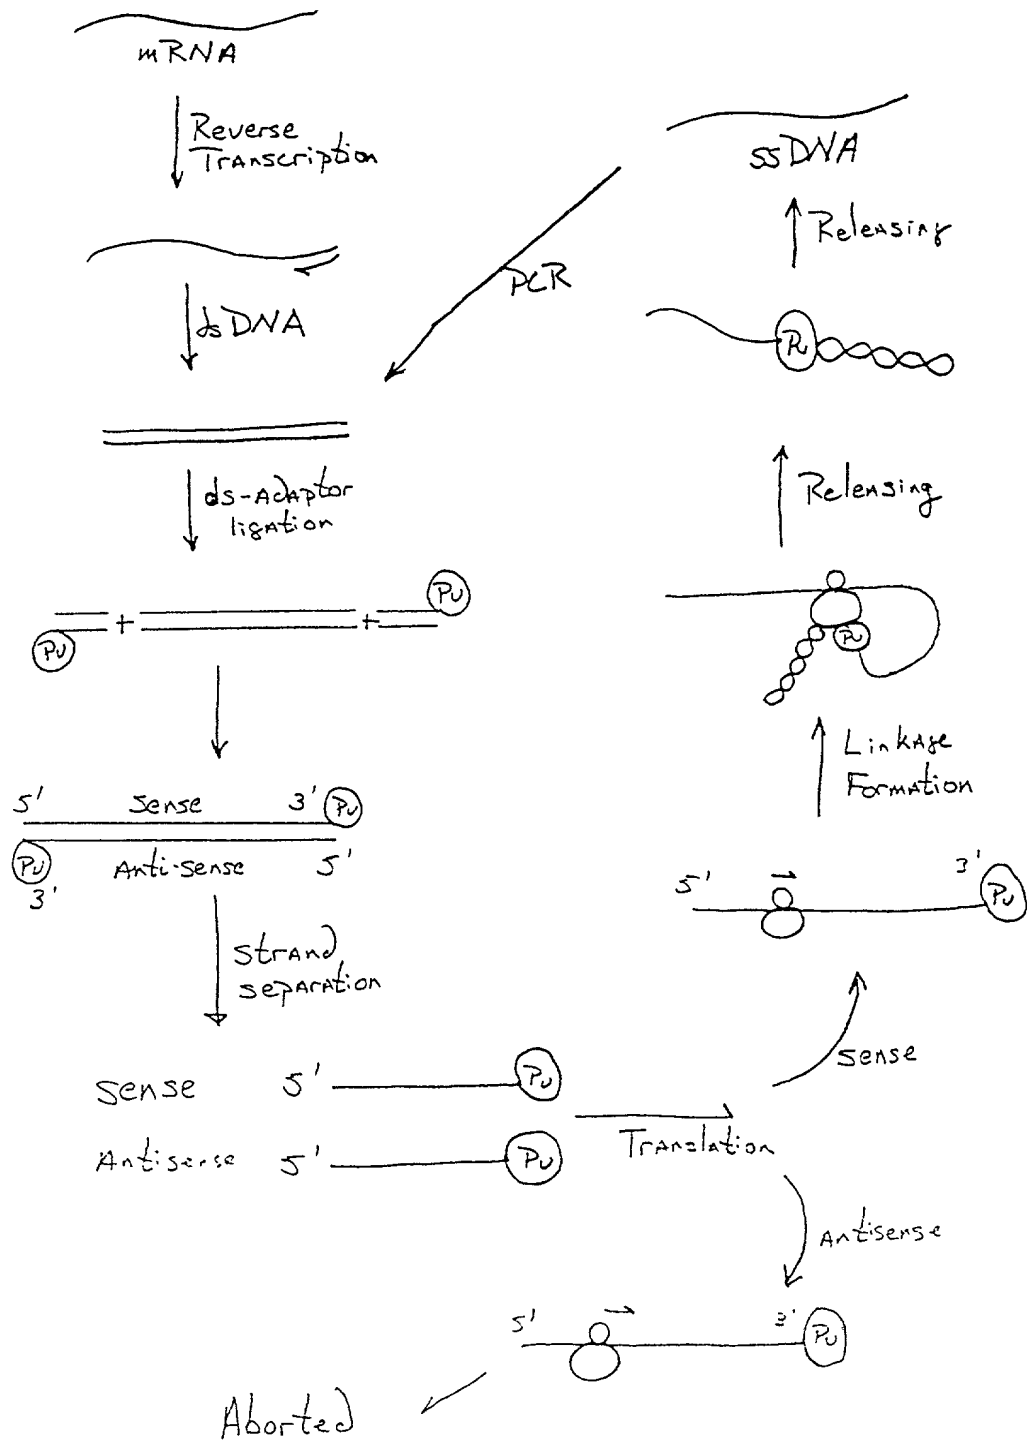 mRNA
Reverse
Transcription
dsDNA
ds-Adaptor
ligation
Pu
+
+
Pu
5'
Sense
3'
Pu
Pu
3'
Anti-sense
5'
Strand
separation
Sense
5'
Pu
Antisense
5'
Pu
Translation
Sense
Antisense
5'
3'
Pu
Aborted
5'
3'
Pu
Linkage
Formation
Pu
Releasing
Pu
Releasing
ssDNA
PCR